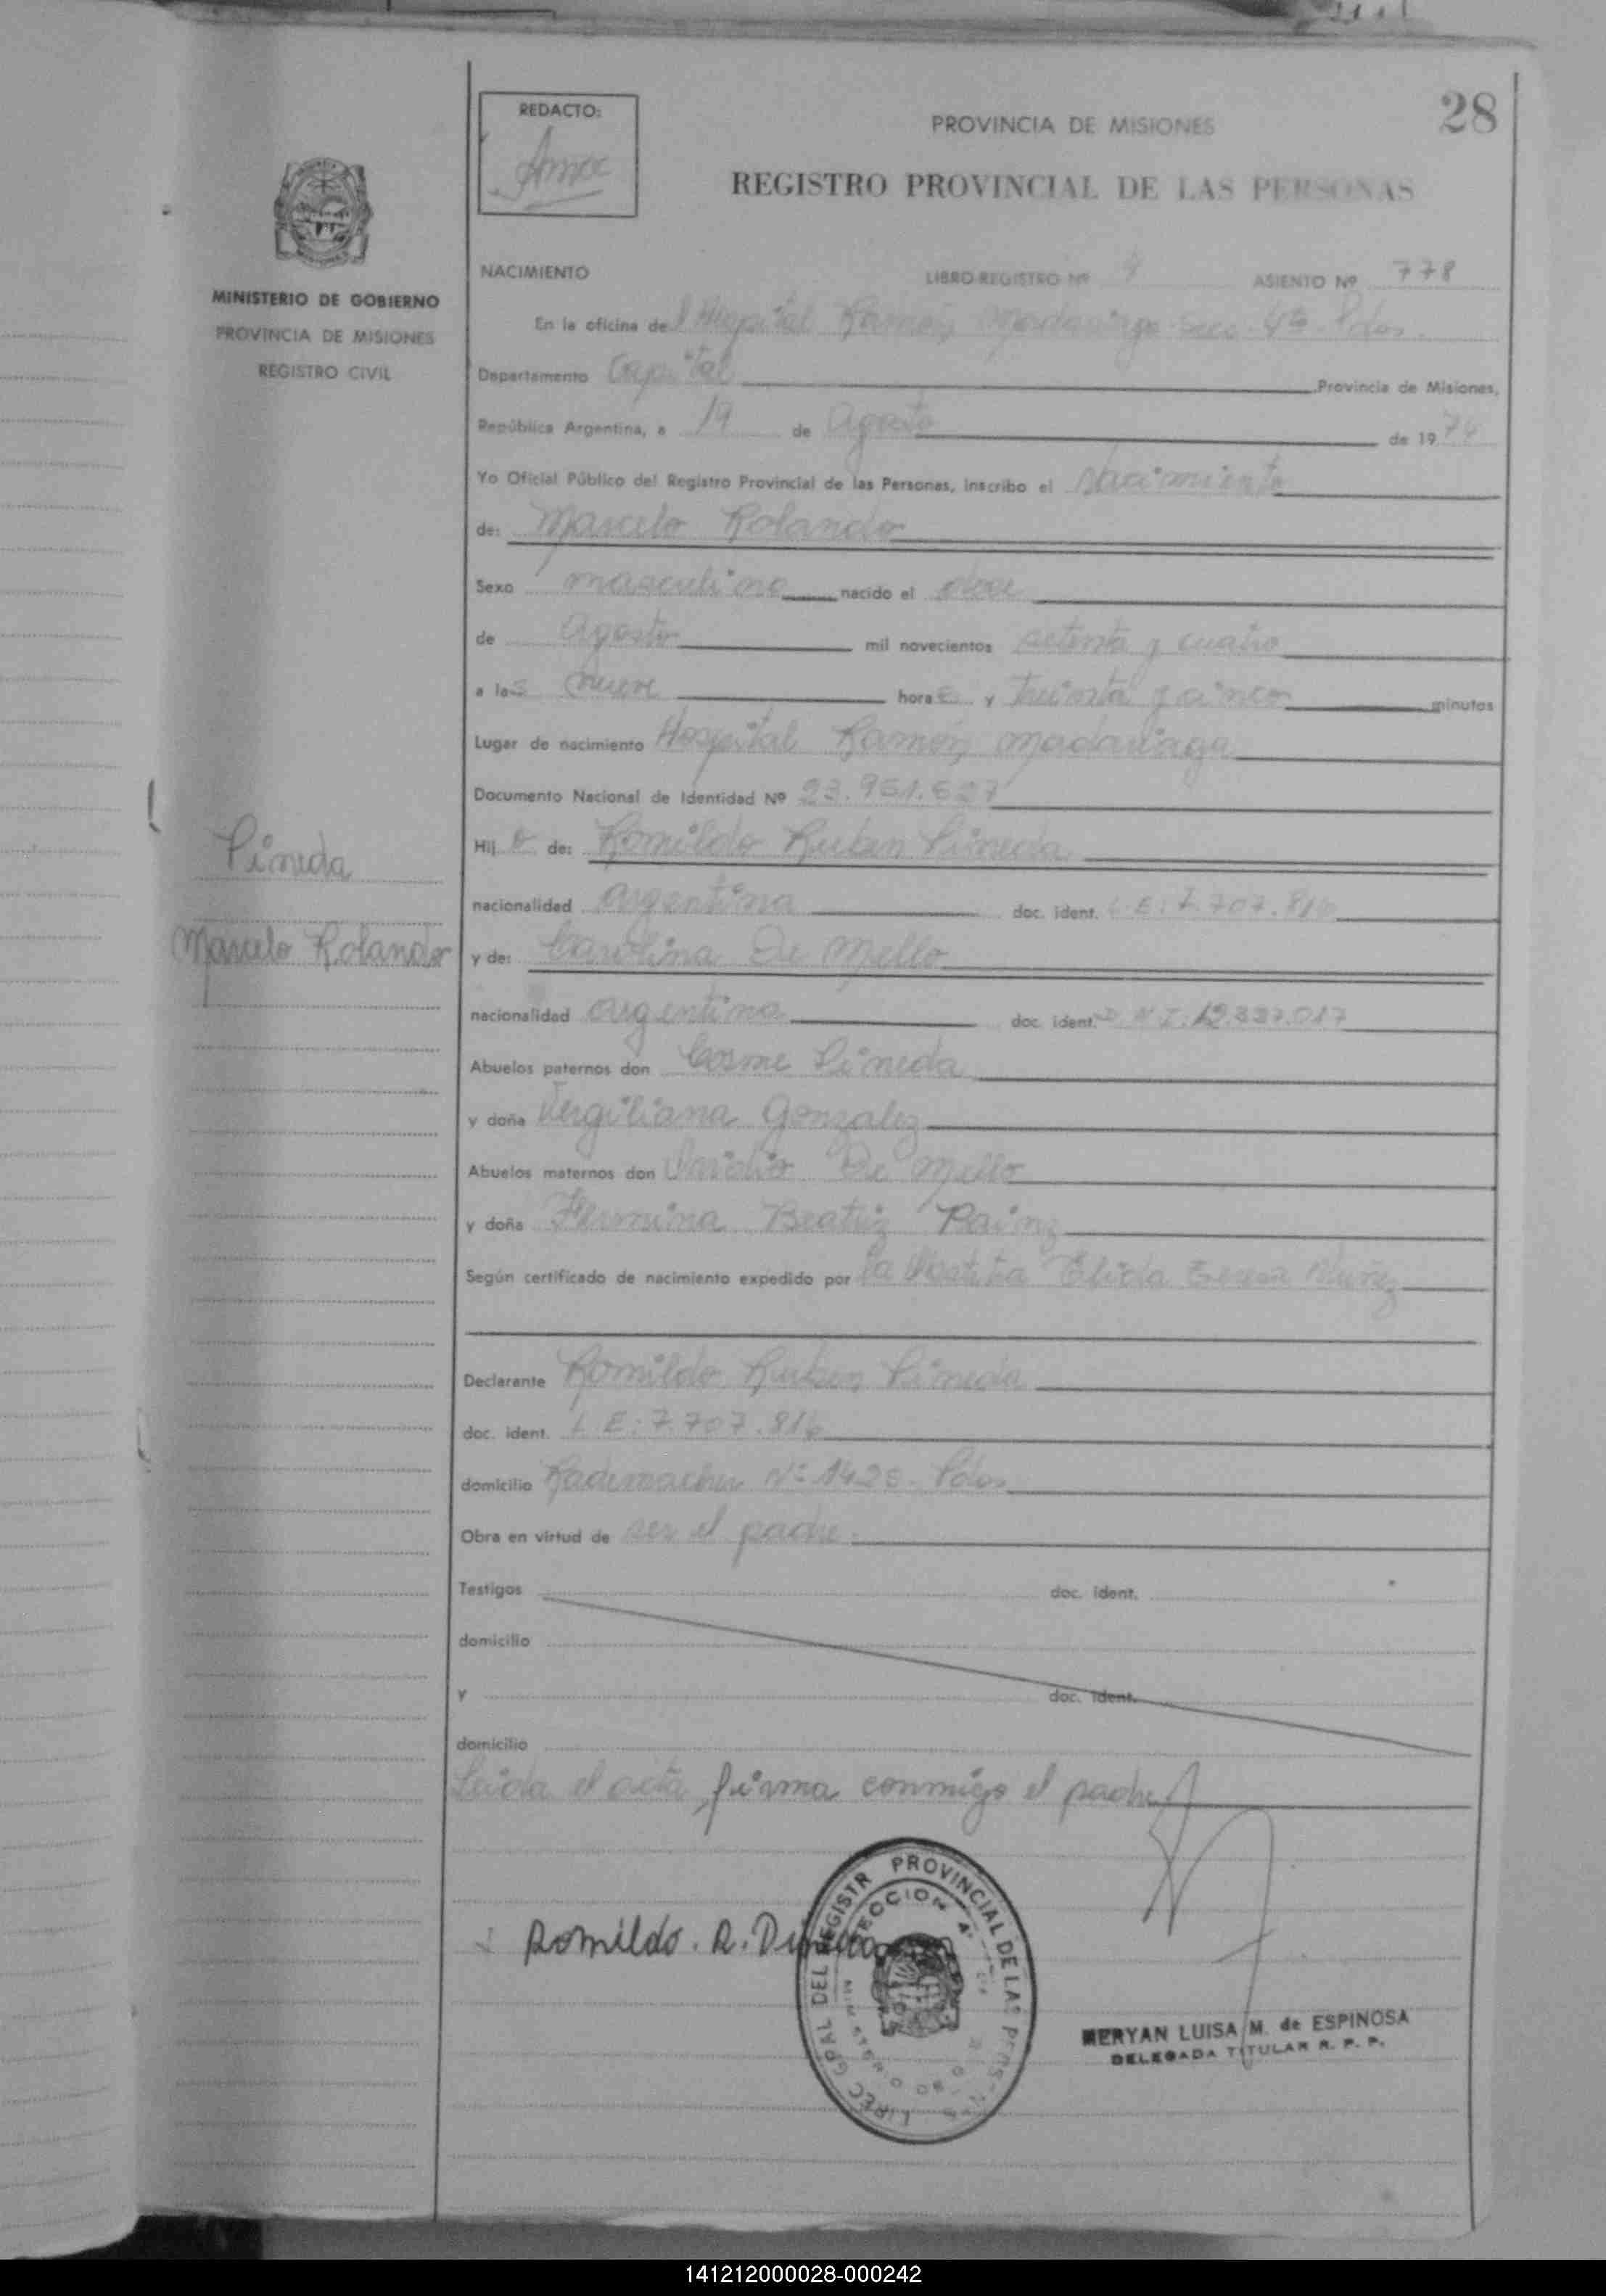 28
REDACTO:
PROVINCIA DE MISIONES
REGISTRO PROVINCIAL DE LAS PERSONAS
NACIMIENTO LIBRO-REGISTRO Nº 4 ASIENTO Nº 778
MINISTERIO DE GOBIERNO
PROVINCIA DE MISIONES
REGISTRO CIVIL
En la oficina del Hospital Ramón Madariaga Secc. 4ta Pdas.
Departamento Capital Provincia de Misiones,
República Argentina, a 19 de Agosto de 1974
Yo Oficial Público del Registro Provincial de las Personas, inscribo el Nacimiento
de: Marcelo Rolando
Sexo masculino nacido el doce
de Agosto mil novecientos setenta y cuatro
a las nueve horas y treinta y cinco minutos
Lugar de nacimiento Hospital Ramón Madariaga
Documento Nacional de Identidad Nº 23.951.527
Pineda
Marcelo Rolando
Hijo de: Romildo Ruben Pineda
nacionalidad argentina doc. ident. L.E: 7.707.816
y de: Carolina De Mello
nacionalidad argentina doc. ident. D.N.I. 12.337.017
Abuelos paternos don Cosme Pineda
y doña Vergiliana Gonzalez
Abuelos maternos don De Mello
y doña Fermina Beatriz
Según certificado de nacimiento expedido por la Obstetra Elida Nuñez
Declarante Romildo Ruben Pineda
doc. ident. L.E: 7.707.816
domicilio Rademacher Nº 1428 - Pdas
Obra en virtud de ser el padre.
Testigos doc. ident.
domicilio
y doc. ident.
domicilio
Leida el acta, firma conmigo el padre
Romildo. R. Pineda
DIREC GRAL DEL REGISTR PROVINCIAL DE LAS PERSONAS
SECCION 4ª
MINISTERIO GOB
MERYAN LUISA M. de ESPINOSA
DELEGADA TITULAR R. P. P.
141212000028-000242